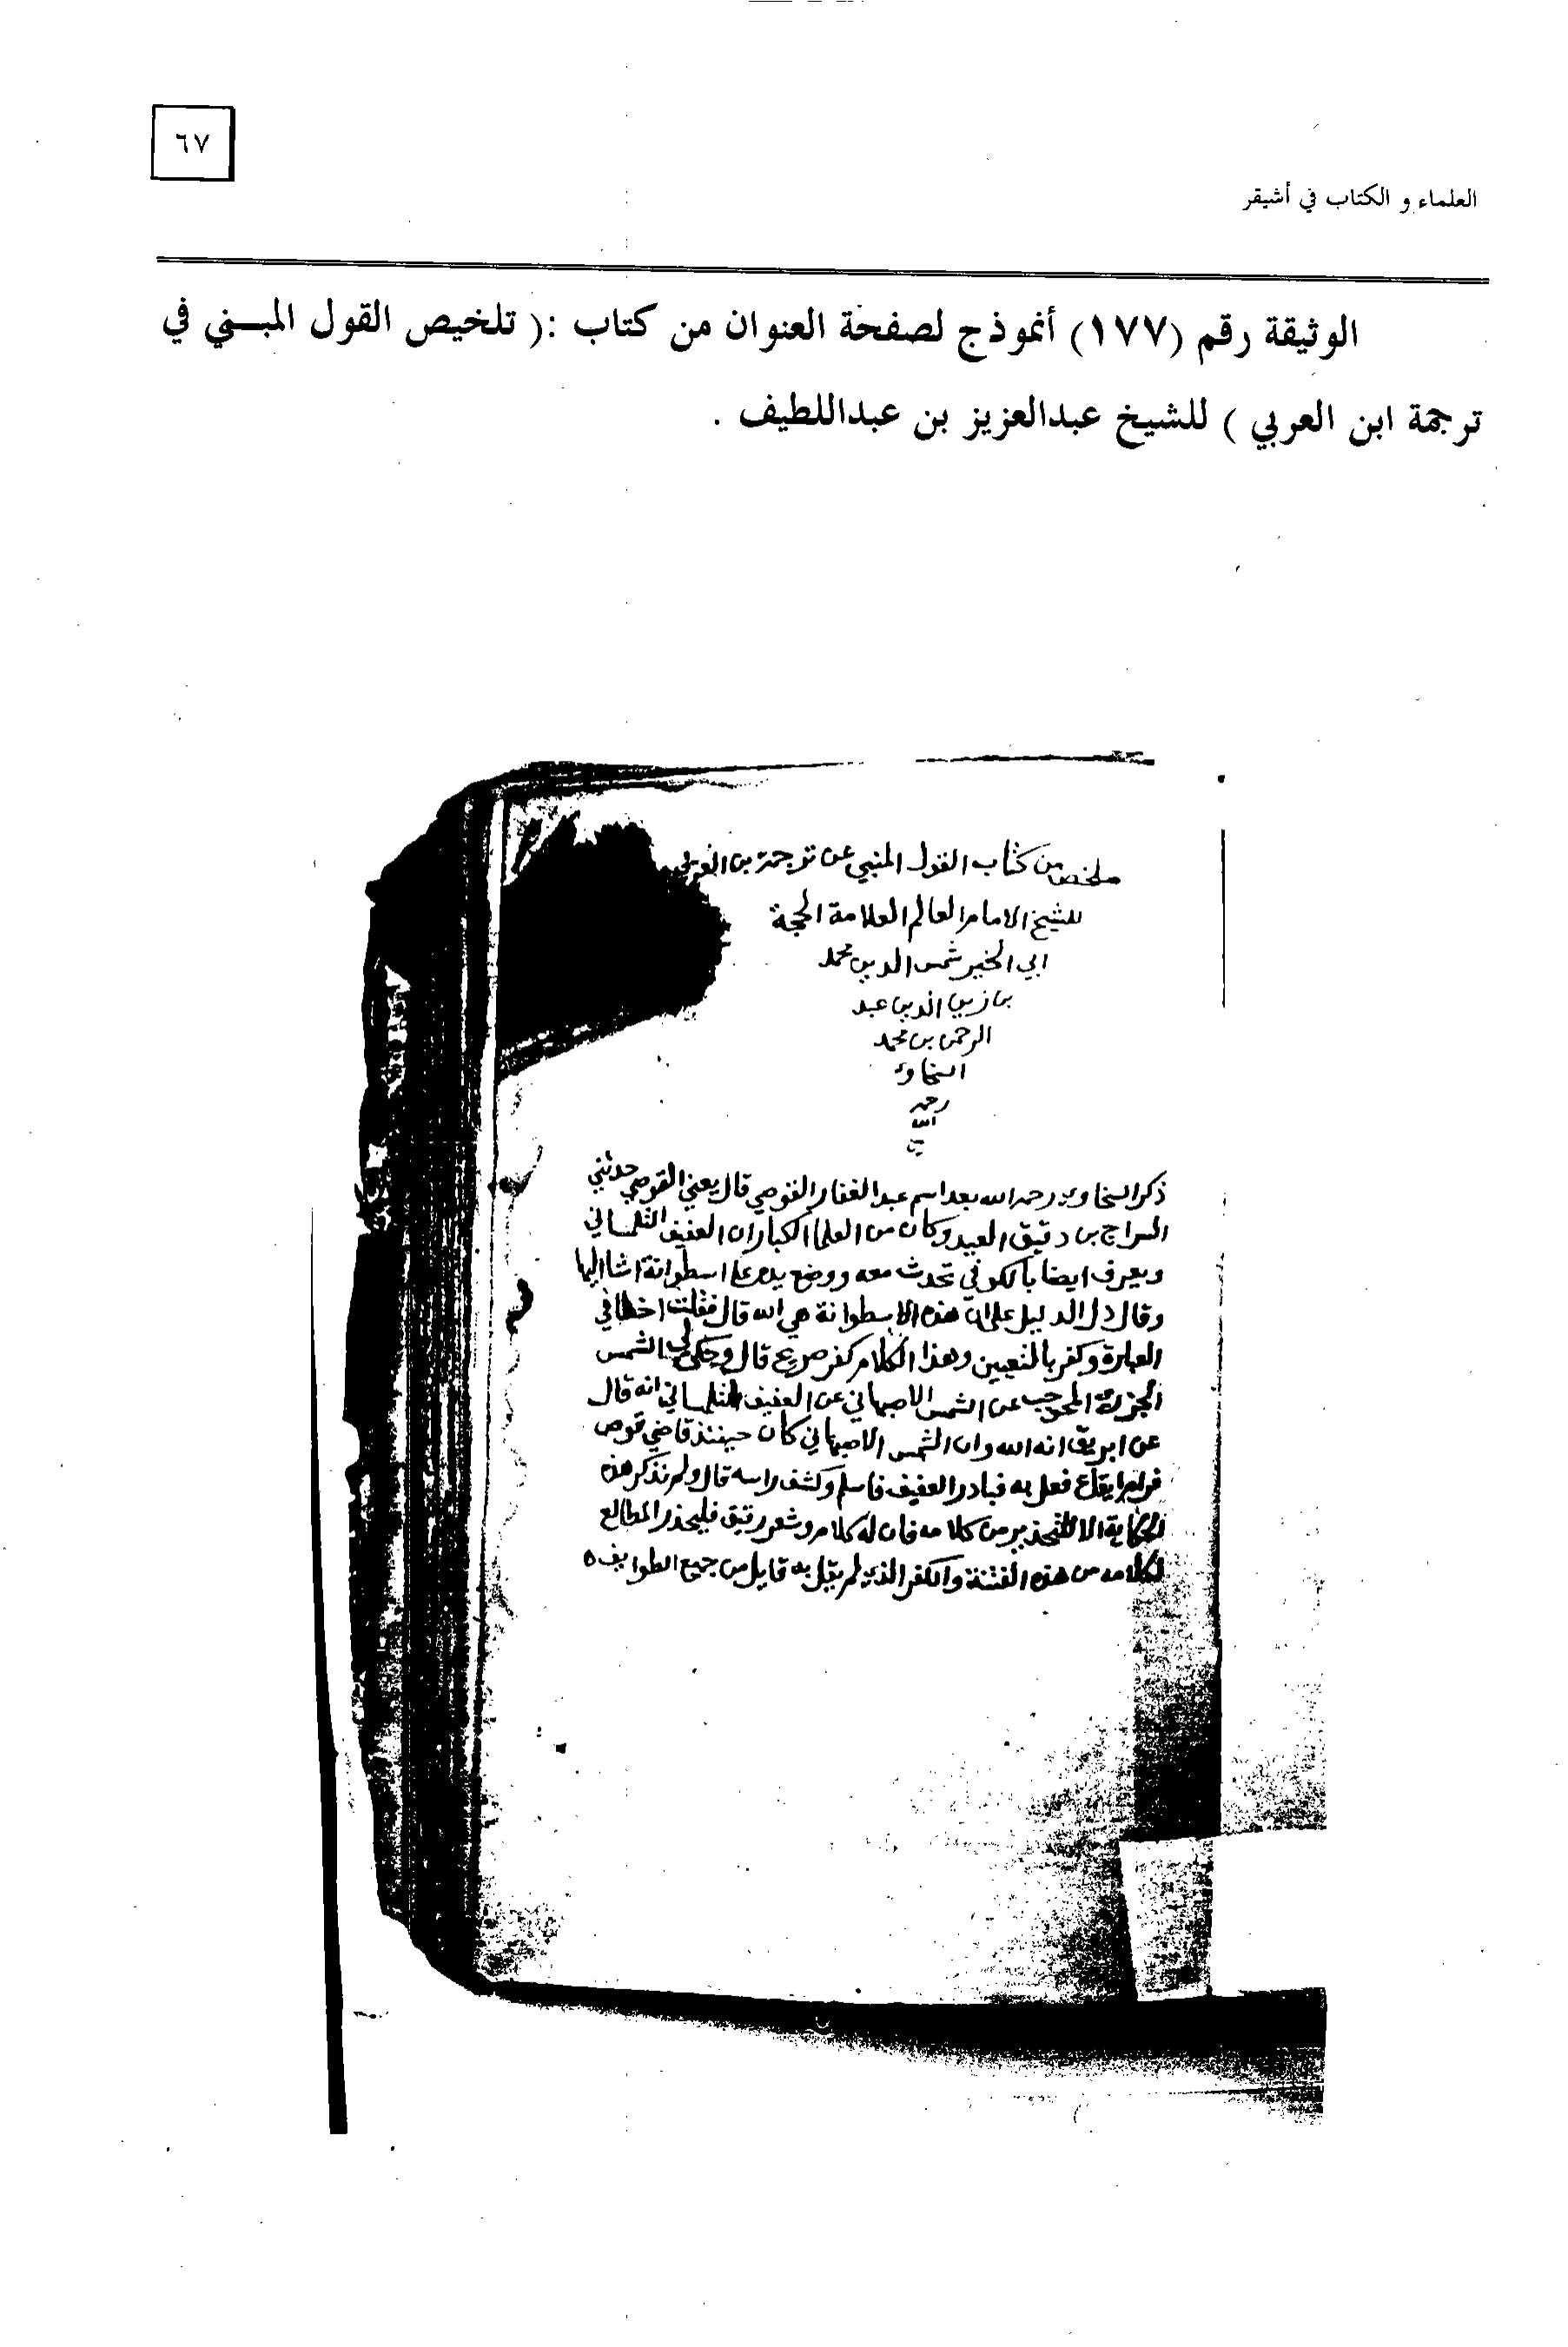 ٦٧
العلماء و الكتاب في أشيقر
الوثيقة رقم (١٧٧) أنموذج لصفحة العنوان من كتاب :( تلخيص القول المبـــني في
ترجمة ابن العربي ) للشيخ عبدالعزيز بن عبداللطيف .
ملخص من كتاب القول المنبي عن ترجمة بن العربي
للشيخ الامام العالم العلامة الحجة
ابي الخير شمس الدين محمد
بن زين الدين عبد
الرحمن بن محمد
السخاوي
رحمه
الله
ذكر السخاوي رحمه الله بعد اسم عبد الغفار القوصي قال يعني القوصي حدثني
السراج بن دقيق العيد وكان من العلما الكبار ان العفيف التلمساني
ويعرف ايضا بالكوفي تحدث معه ووضع يده على اسطوانة اشا اليها
وقال دل الدليل على ان هذه الاسطوانة هي الله قال فقلت اخطا في
العبارة وكفر بالتعيين وهذا الكلام كفر صريح قال وحكى لي الشمس
الجزري عن الشمس الاصبهاني عن العفيف التلمساني انه قال
عن ابريق انه الله وان الشمس الاصبهاني كان حينئذ قاضي قوص
فرام ايقاع فعل به فبادر العفيف فاسلم وكشف راسه قال ولم نذكر هذه
الحكاية الا للتحذير من كلامه فان له كلام وشعر رقيق فليحذر المطالع
لكلامه من هذه الفتنة والكفر الذي لم يقل به قايل من جميع الطوايف ه